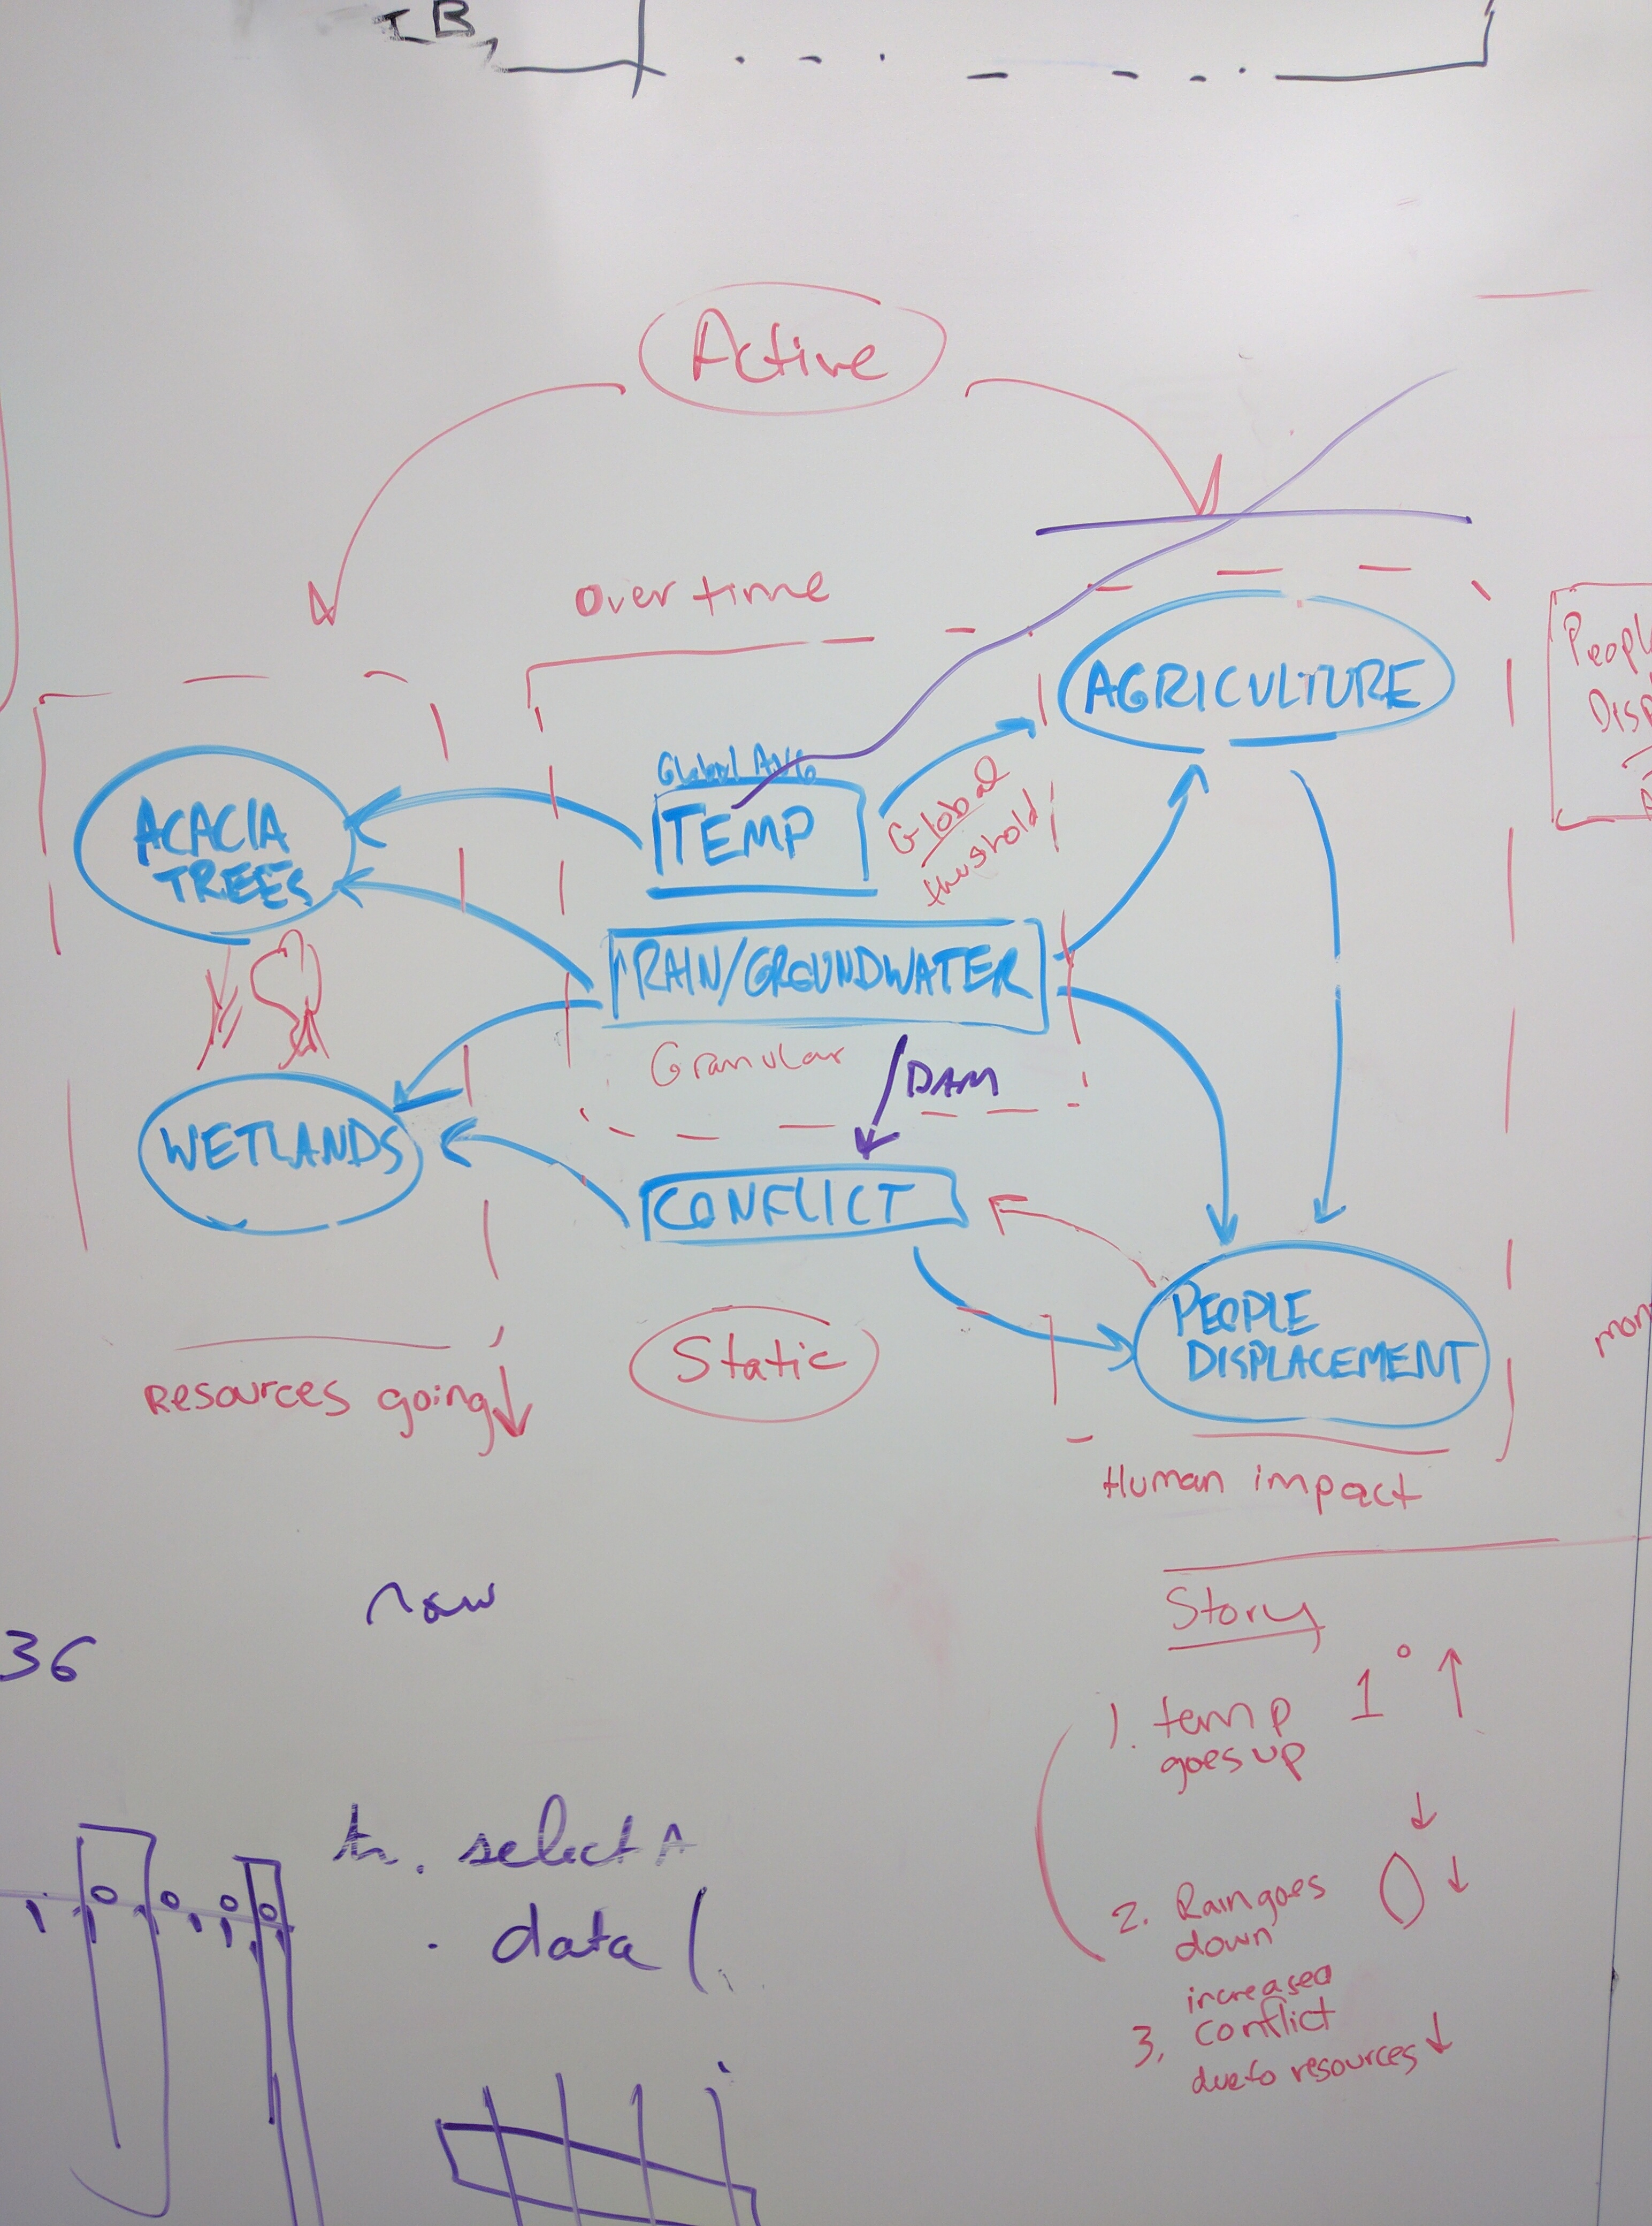 IB,
Active
Over time
AGRICULTURE
Global AVG
TEMP
Global
threshold
ACACIA
TREES
RAIN/GROUNDWATER
Granular
DAM
WETLANDS
CONFLICT
PEOPLE
DISPLACEMENT
Static
Resources going ↓
Human impact
Story
1. temp 1° ↑
goes up
2. Rain goes
down
increased
3. Conflict
due to resources ↓
36
select A
. data (